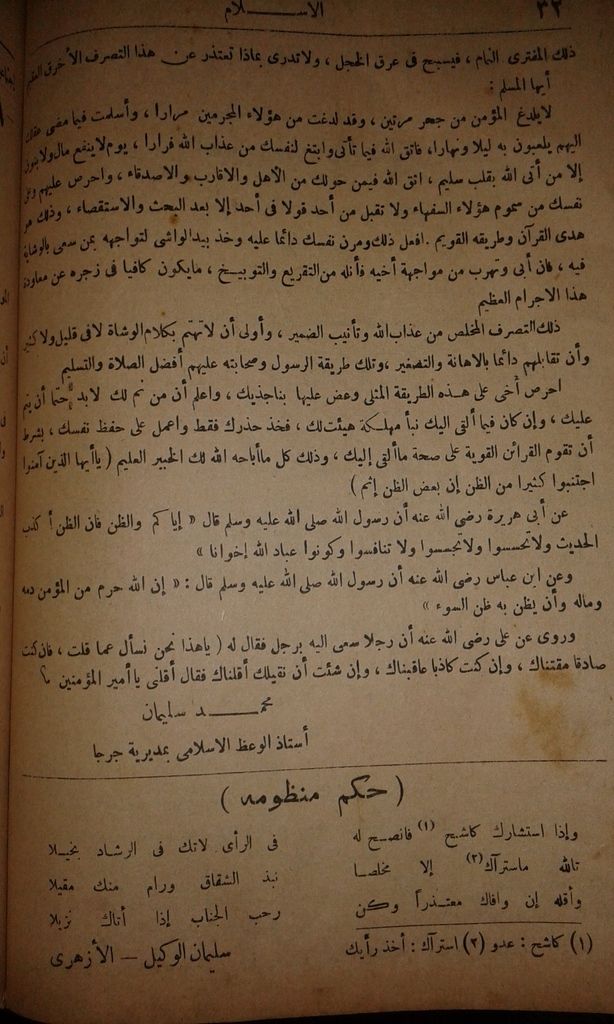 الاســـلام ٣٢
ذلك المفترى النمام ، فيسبح فى عرق الخجل ، ولاتدرى بماذا تعتذر عن هذا التصرف الأخرق
أيها المسلم :
لايلدغ المؤمن من جحر مرتين ، وقد لدغت من هؤلاء المجرمين مرارا ، وأسلمت فيما مضى عقلك
اليهم يلعبون به ليلا ونهارا، فاتق الله فيما تأتى وابتغ لنفسك من عذاب الله فرارا ، يوم لا ينفع مال ولا بنون
إلا من أتى الله بقلب سليم ، اتق الله فيمن حولك من الأهل والاقارب والاصدقاء ، واحرص عليهم وعلى
نفسك من سموم هؤلاء السفهاء ولا تقبل من أحد قولا فى أحد إلا بعد البحث والاستقصاء ، وذلك هو
هدى القرآن وطريقه القويم . افعل ذلك ومرن نفسك دائما عليه وخذ بيد الواشى لتواجهه بمن سعى بالوشاية
فيه ، فان أبى وتهرب من مواجهة أخيه فأنله من التقريع والتوبيخ ، مايكون كافيا فى زجره عن معاودة
هذا الاجرام العظيم
ذلك التصرف المخلص من عذاب الله وتأنيب الضمير ، وأولى أن لاتهتم بكلام الوشاة لافى قليل ولا كثير
وأن تقابلهم دائما بالاهانة والتصغير ، وتلك طريقة الرسول وصحابته عليهم أفضل الصلاة والتسليم
احرص أخى على هـذه الطريقة المثلى وعض عليها بناجذيك ، واعلم أن من نم لك لابد حتما أن ينم
عليك ، وإن كان فيما ألقى اليك نبأ مهلكة هيئت لك ، فخذ حذرك فقط واعمل على حفظ نفسك ، بشرط
أن تقوم القرائن القوية على صحة ماألقى إليك ، وذلك كل ماأباحه الله لك الخبير العليم ( ياأيها الذين آمنوا
اجتنبوا كثيرا من الظن إن بعض الظن إثم )
عن أبى هريرة رضى الله عنه أن رسول الله صلى الله عليه وسلم قال « إياكم والظن فان الظن أكذب
الحديث ولاتحسسوا ولاتجسسوا ولا تنافسوا وكونوا عباد الله إخوانا »
وعن ابن عباس رضى الله عنه أن رسول الله صلى الله عليه وسلم قال : « إن الله حرم من المؤمن دمه
وماله وأن يظن به ظن السوء »
وروى عن على رضى الله عنه أن رجلا سعى اليه برجل فقال له ( ياهذا نحن نسأل عما قلت ، فان كنت
صادقا مقتناك ، وإن كنت كاذبا عاقبناك ، وإن شئت أن نقيلك أقلناك فقال أقلنى يا أمير المؤمنين ؟
محمـــد سليمان
أستاذ الوعظ الاسلامى بمديرية جرجا
( حكم منظومه )
وإذا استشارك كاشح (١) فانصح له فى الرأى لاتك فى الرشاد بخيلا
تالله ماستراك (٢) إلا مخلصا نبذ الشقاق ورام منك مقيلا
وأقله إن وافاك معتـذراً وكن رحب الجناب إذا أتاك نزيلا
(١) كاشح : عدو (٢) استراك : أخذ رأيك سليمان الوكيل – الأزهرى